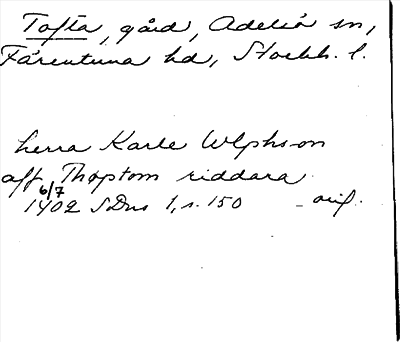 Tofta, gård, Adelsö sn,
Färentuna hd, Stockh. l.
herra Karle Wlphson
aff Thoptom riddara
6/7
1402 SDns 1, s. 150 - orig.